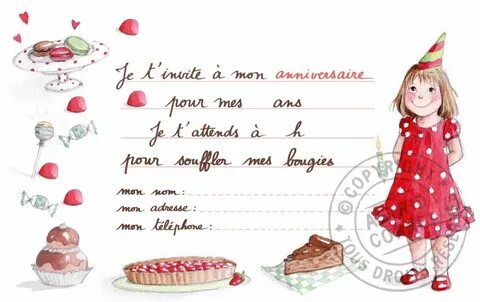 Je t'invite à mon anniversaire
pour mes ans
Je t'attends à h
pour souffler mes bougies
mon nom :
mon adresse :
mon téléphone :
© COPYR
TOUS DRO